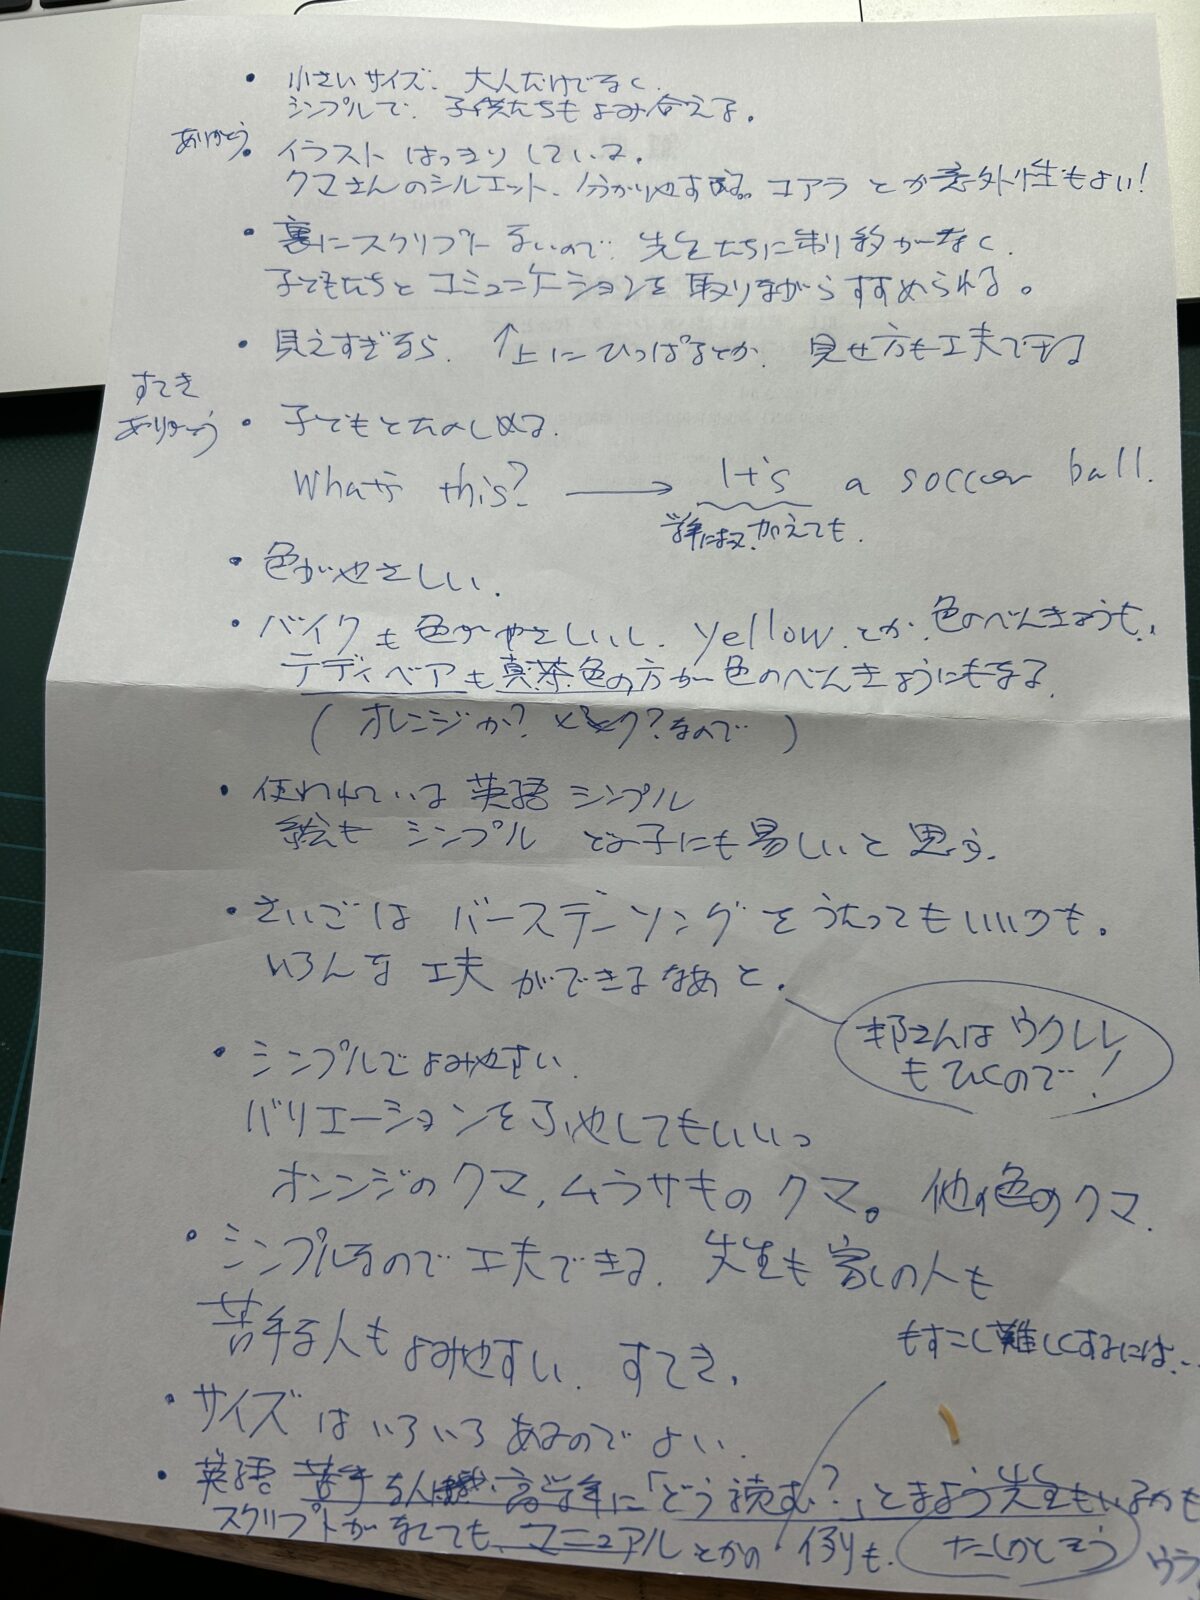 ・小さいサイズ. 大人だけでなく.
シンプルで. 子供たちもよみ合える.
ありがとう。
・イラスト はっきりしている.
クマさんのシルエット. 分かりやすい。コアラ とか意外性もよい!
・裏にスクリプトないので 先生たちに制約がなく.
子どもたちと コミュニケーションを取りながらすすめられる。
・見えすぎるなら. ↑上にひっぱるとか. 見せ方も工夫できる
すてき
ありがとう
・子どもとたのしめる.
What's this? → It's a soccer ball.
学年によって. かえても.
・色がやさしい.
・バイクも色がやさしいし. yellow. とか. 色のべんきょうも.
テディベアも真茶色の方が色のべんきょうにもなる.
(オレンジか? ?なので)
・使われている英語 シンプル
絵も シンプル どの子にも易しいと思う.
・さいごは バースデーソングをうたってもいいのも.
いろんな 工夫 ができるなあと.
邦さんは ウクレレ
もひくので!
・シンプルでよみやすい.
バリエーションをふやしてもいいっ
オレンジのクマ, ムラサキのクマ。他の色のクマ.
・シンプルなので工夫できる. 先生も家の人も
苦手な人もよみやすい. すてき.
もすこし難しくするには...
・サイズ はいろいろ あるのでよい.
・英語 苦手な人 高学年に「どう読む?」とまよう先生もいるかも
スクリプトがなくても、マニュアルとかの 例も. たしかにそう ウラ